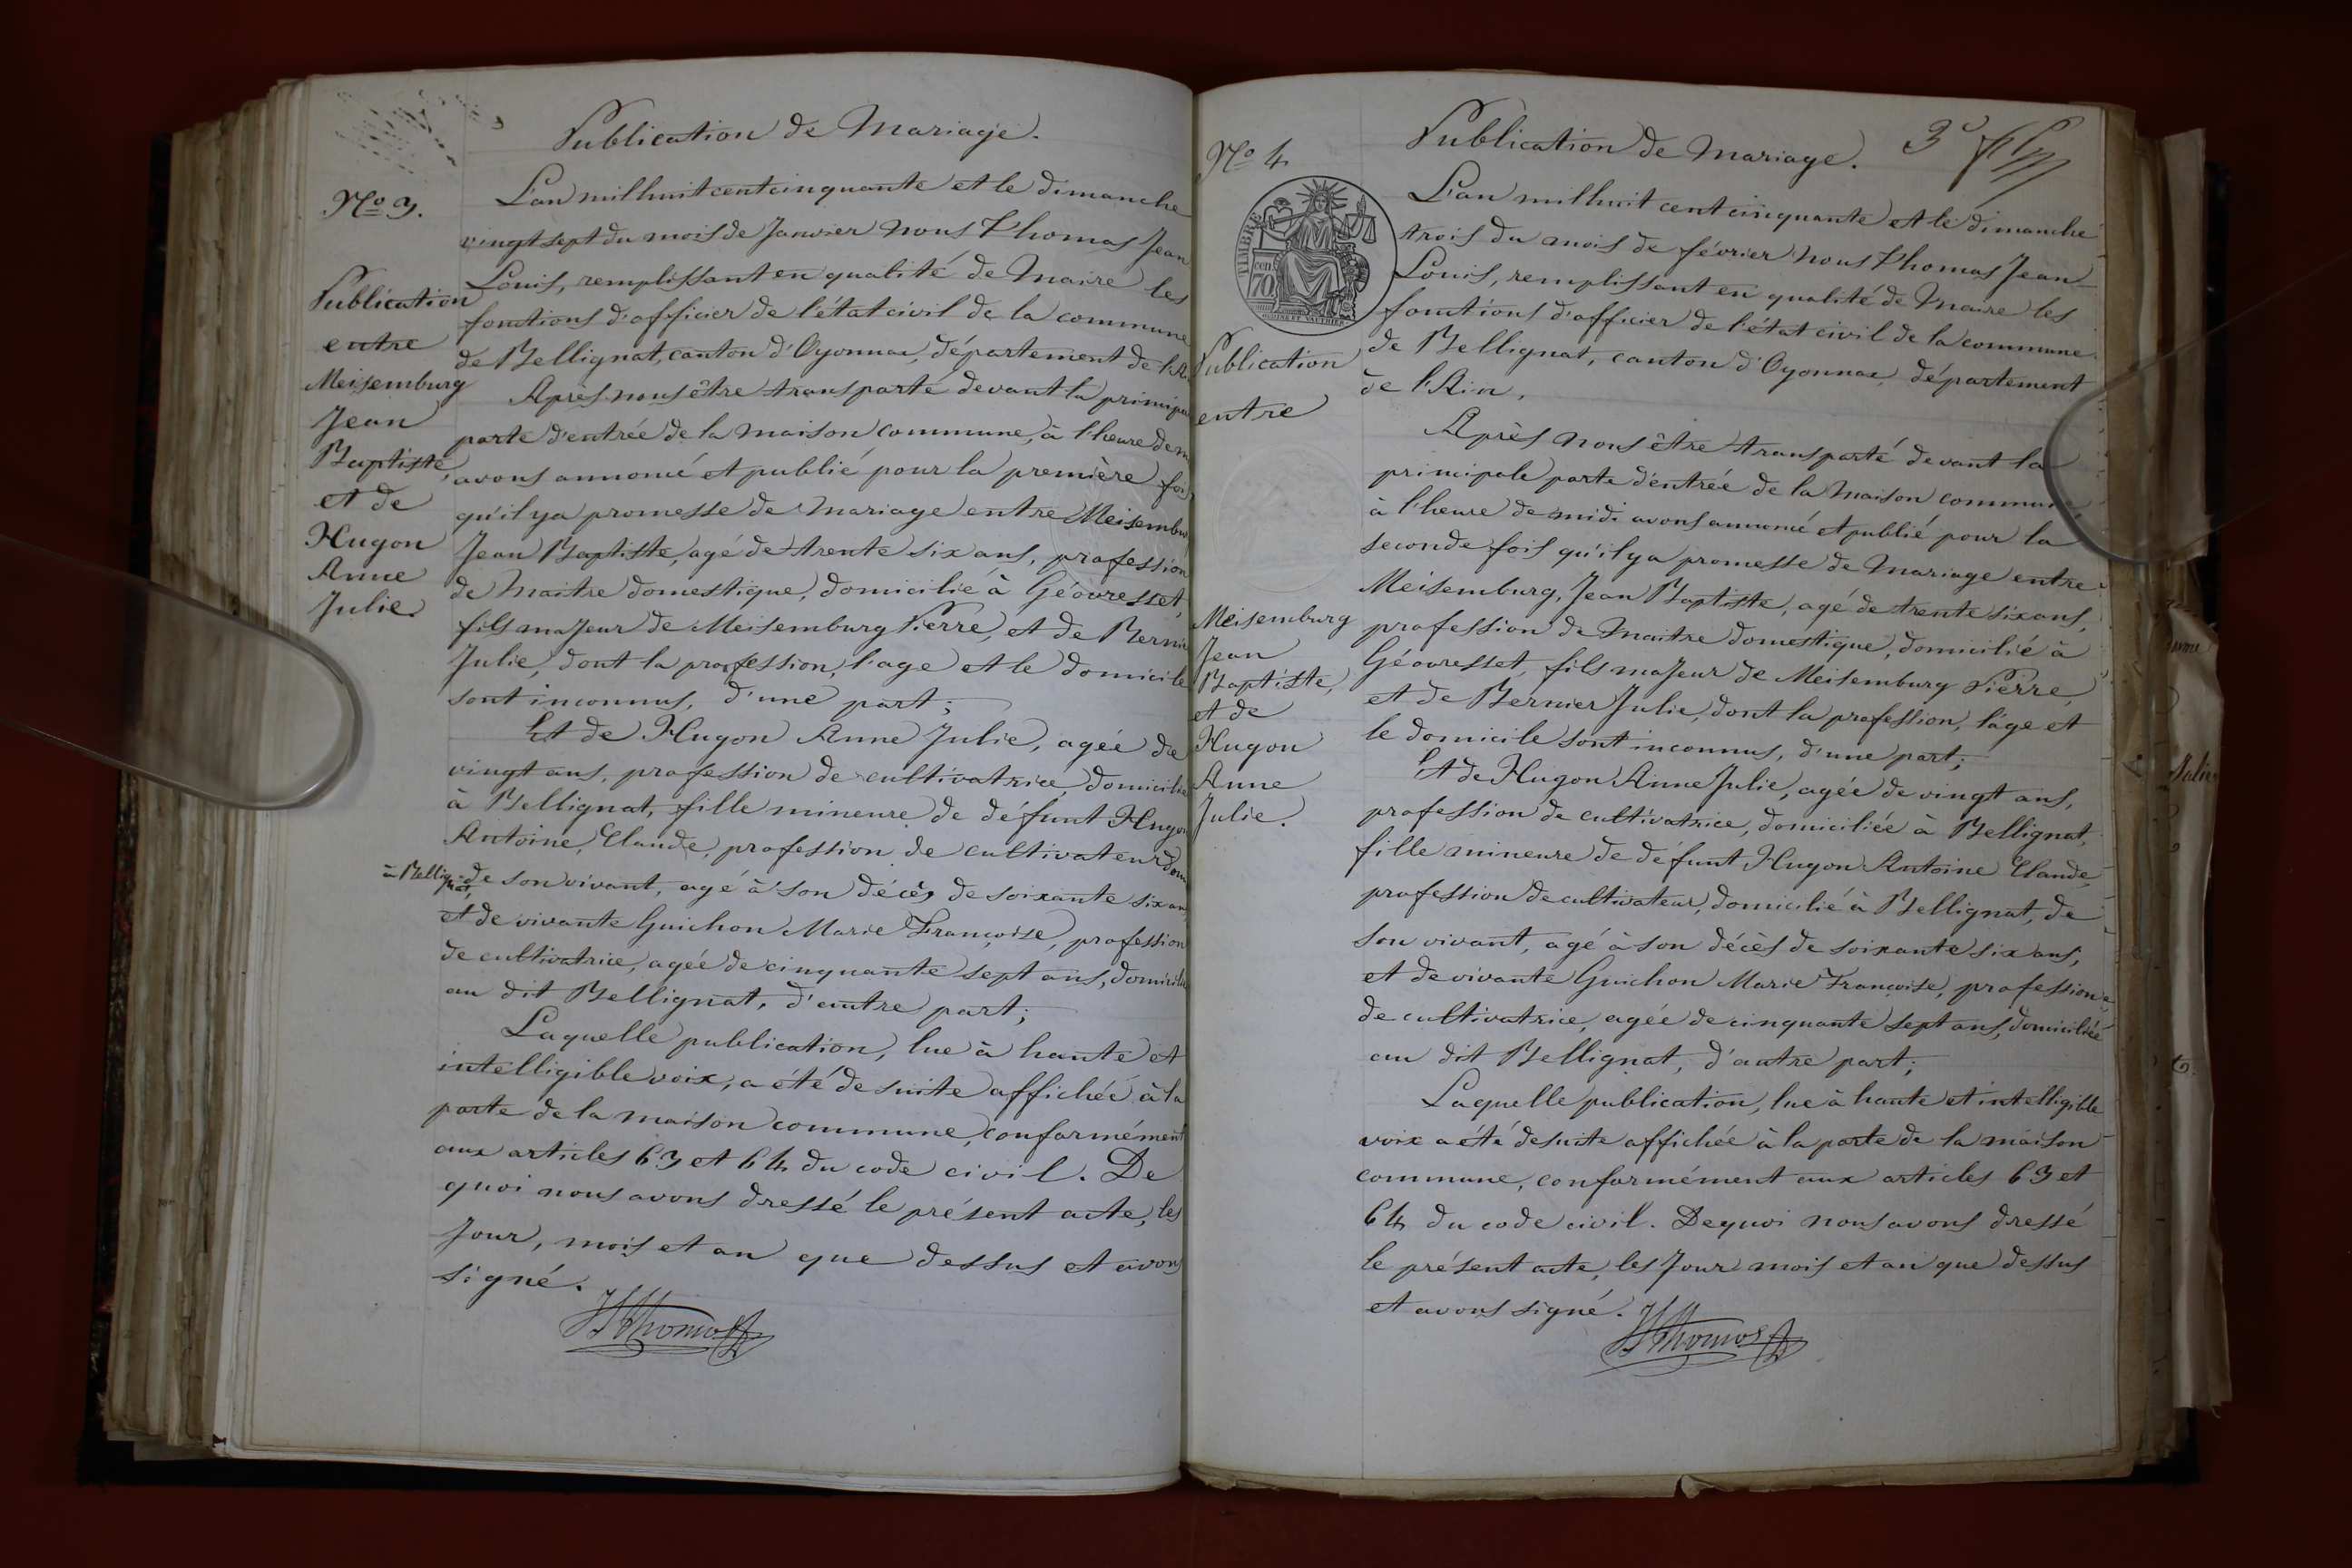 Publication de Mariage.
No 3.
Publication
entre
Meisemburg
Jean
Baptiste,
et de
Hugon
Anne
Julie.
L'an mil huit cent cinquante et le dimanche
vingt sept du mois de Janvier nous Thomas Jean
Louis, remplissant en qualité de Maire les
fonctions d'officier de l'état civil de la commune
de Bellignat, canton d'Oyonnac, département de l'A
Après nous être transporté devant la principa
porte d'entrée de la maison commune, à l'heure de m
avons annoncé et publié pour la première fois
qu'il y a promesse de mariage entre Meisembu
Jean Baptiste, agé de trente six ans, profession
de Maitre domestique, domicilié à Géovresset,
fils majeur de Meisemburg Pierre, et de Berni
Julie, dont la profession, l'age et le domicile
sont inconnus, d'une part;
Et de Hugon Anne Julie, agée de
vingt ans, profession de cultivatrice, domicilié
à Bellignat, fille mineure de défunt Hugon
Antoine, Claude, profession de cultivateur dom
à Bellignat, de son vivant, agé à son décès de soixante six ans
et de vivante Guichon Marie Françoise, profession
de cultivatrice, agée de cinquante sept ans, domicilié
au dit Bellignat, d'autre part;
Laquelle publication, lue à haute et
intelligible voix, a été de suite affichée à la
porte de la maison commune, conformément
aux articles 63 et 64 du code civil. De
quoi nous avons dressé le présent acte, les
Jour, mois et an que dessus et avons
signé.
JLThomas
Publication de Mariage.
3e
No 4
TIMBRE
70 cen
Publication
entre
Meisemburg
Jean
Baptiste,
et de
Hugon
Anne
Julie.
L'an mil huit cent cinquante et le dimanche
trois du mois de février nous Thomas Jean
Louis, remplissant en qualité de Maire les
fonctions d'officier de l'état civil de la commune
de Bellignat, canton d'Oyonnac, département
de l'Ain,
Après nous être transporté devant la
principale porte d'entrée de la maison commune,
à l'heure de midi avons annoncé et publié pour la
seconde fois qu'il y a promesse de mariage entre
Meisemburg, Jean Baptiste, agé de trente six ans,
profession de Maitre domestique, domicilié à
Géovresset, fils majeur de Meisemburg Pierre,
et de Bernier Julie, dont la profession, l'âge et
le domicile sont inconnus, d'une part;
Et de Hugon Anne Julie, agée de vingt ans,
profession de cultivatrice, domiciliée à Bellignat,
fille mineure de défunt Hugon Antoine Claude,
profession de cultivateur, domicilié à Bellignat, de
son vivant, agé à son décès de soixante six ans,
et de vivante Guichon Marie Françoise, profession
de cultivatrice, agée de cinquante sept ans, domiciliée
au dit Bellignat, d'autre part;
Laquelle publication, lue à haute et intelligible
voix a été de suite affichée à la porte de la maison
commune, conformément aux articles 63 et
64 du code civil. De quoi nous avons dressé
le présent acte, les Jour mois et an que dessus
et avons signé.
JLThomas